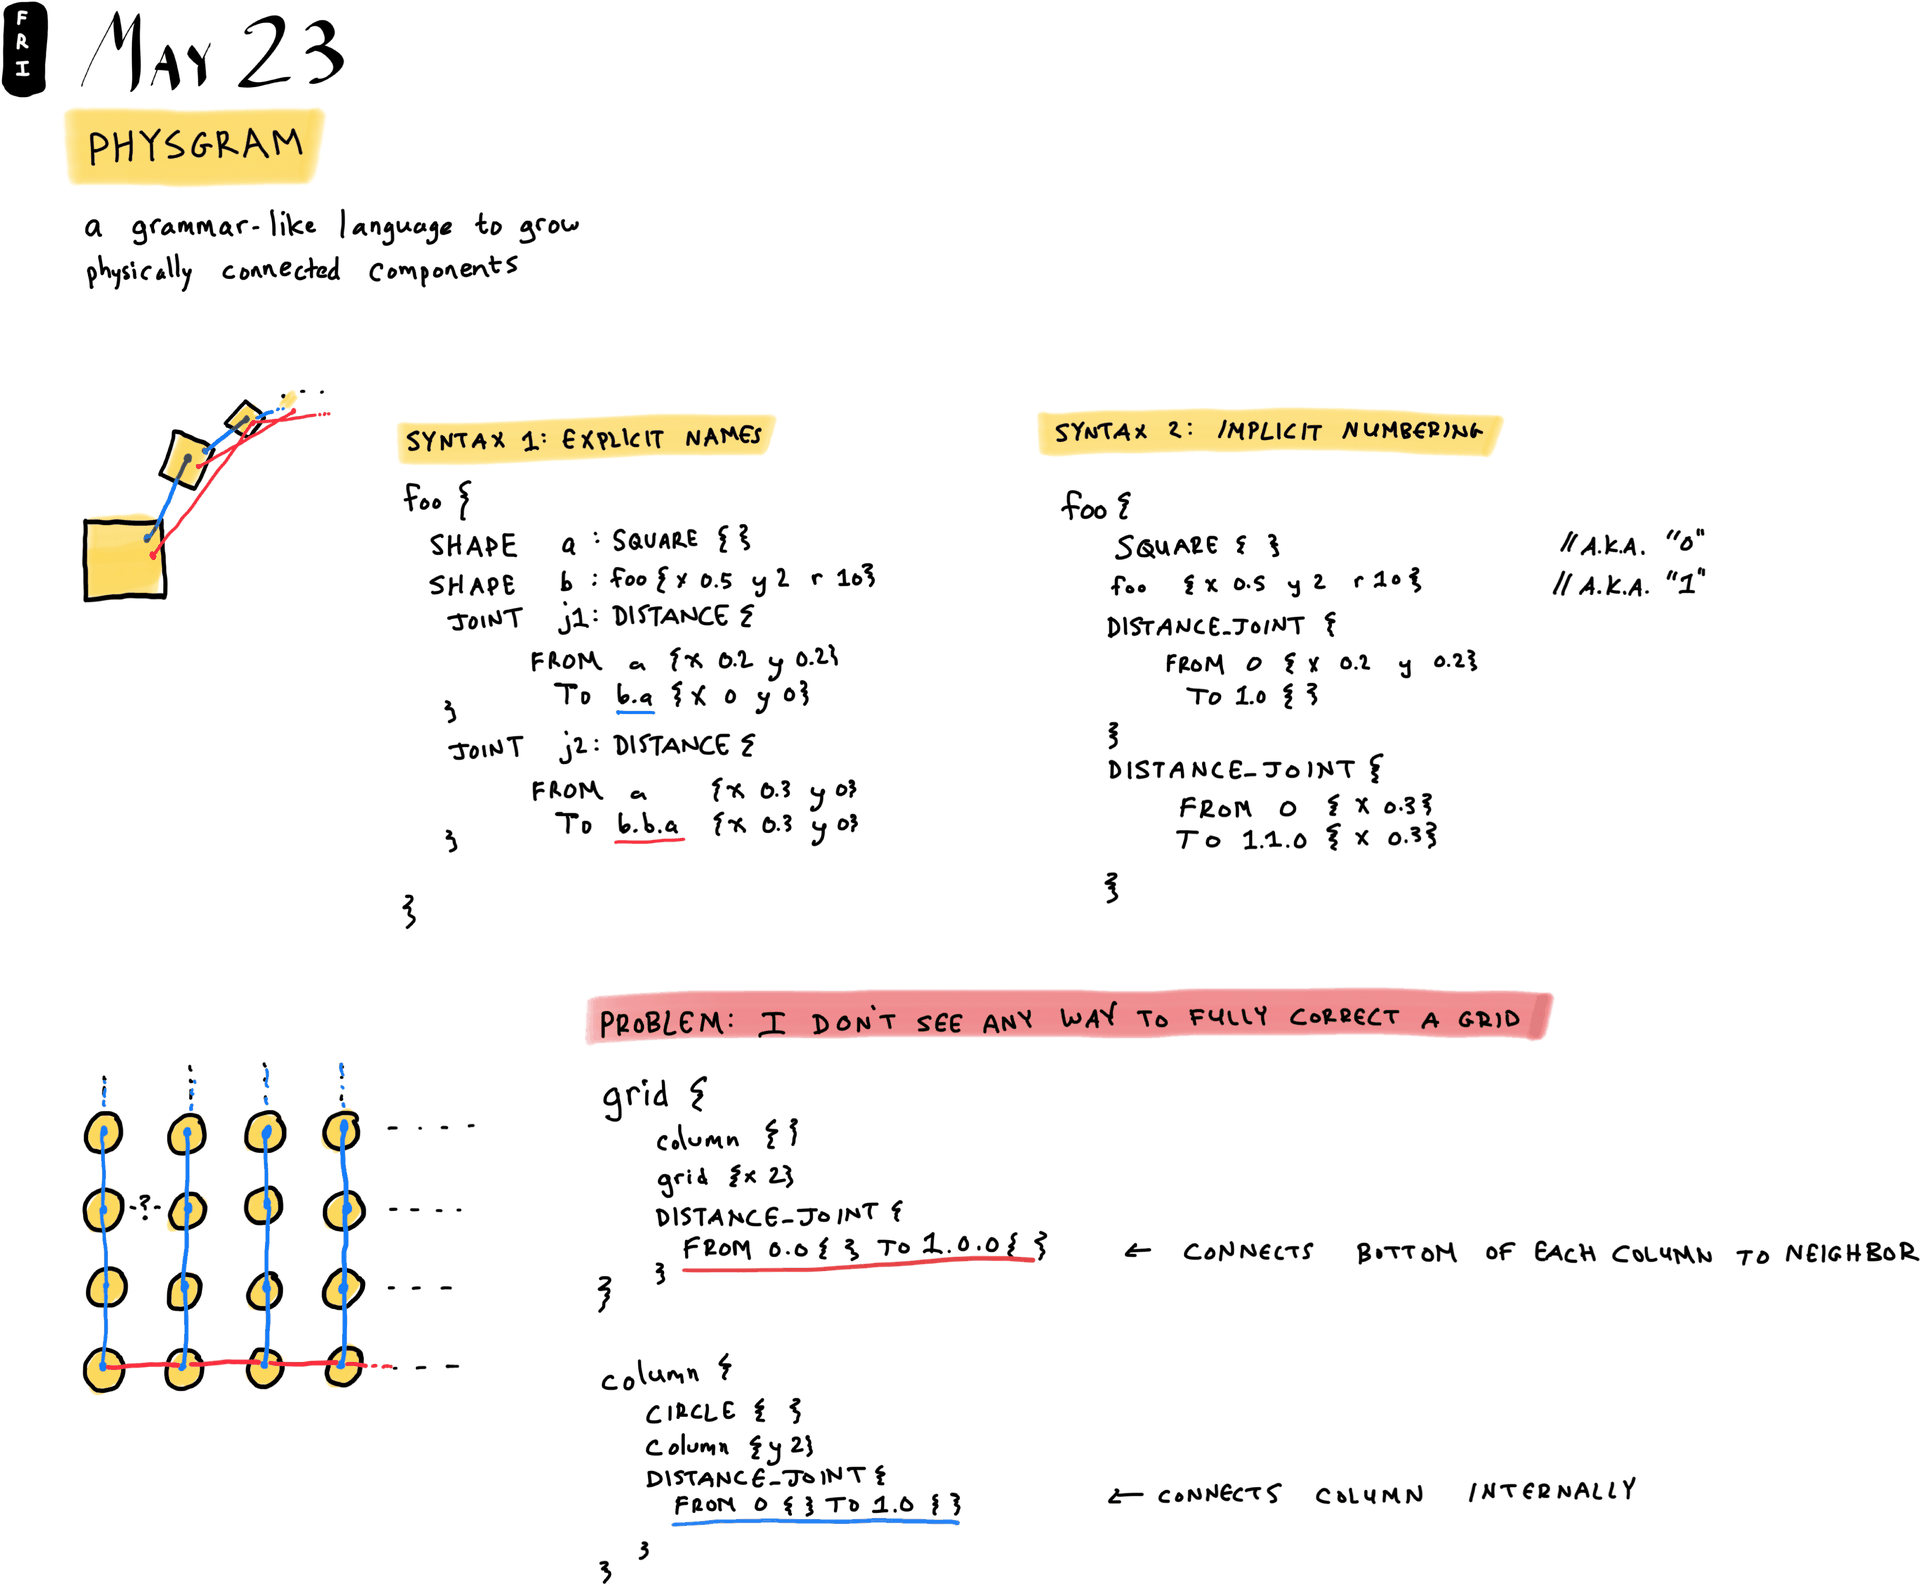 FRI
MAY 23
PHYSGRAM
a grammar-like language to grow
physically connected components
SYNTAX 1: EXPLICIT NAMES
foo {
SHAPE a : SQUARE { }
SHAPE b : foo { x 0.5 y 2 r 10}
JOINT j1: DISTANCE {
FROM a {x 0.2 y 0.2}
TO b.a {x 0 y 0}
}
JOINT j2: DISTANCE {
FROM a {x 0.3 y 0}
TO b.b.a {x 0.3 y 0}
}
}
SYNTAX 2: IMPLICIT NUMBERING
foo {
SQUARE { } // A.K.A. "0"
foo { x 0.5 y 2 r 10 } // A.K.A. "1"
DISTANCE_JOINT {
FROM 0 { x 0.2 y 0.2}
TO 1.0 { }
}
DISTANCE_JOINT {
FROM 0 { x 0.3}
TO 1.1.0 { x 0.3}
}
PROBLEM: I DON'T SEE ANY WAY TO FULLY CORRECT A GRID
-?-
grid {
column { }
grid {x 2}
DISTANCE_JOINT {
FROM 0.0 { } TO 1.0.0 { } ← CONNECTS BOTTOM OF EACH COLUMN TO NEIGHBOR
}
}
column {
CIRCLE { }
column {y 2}
DISTANCE_JOINT {
FROM 0 { } TO 1.0 { } ← CONNECTS COLUMN INTERNALLY
}
}